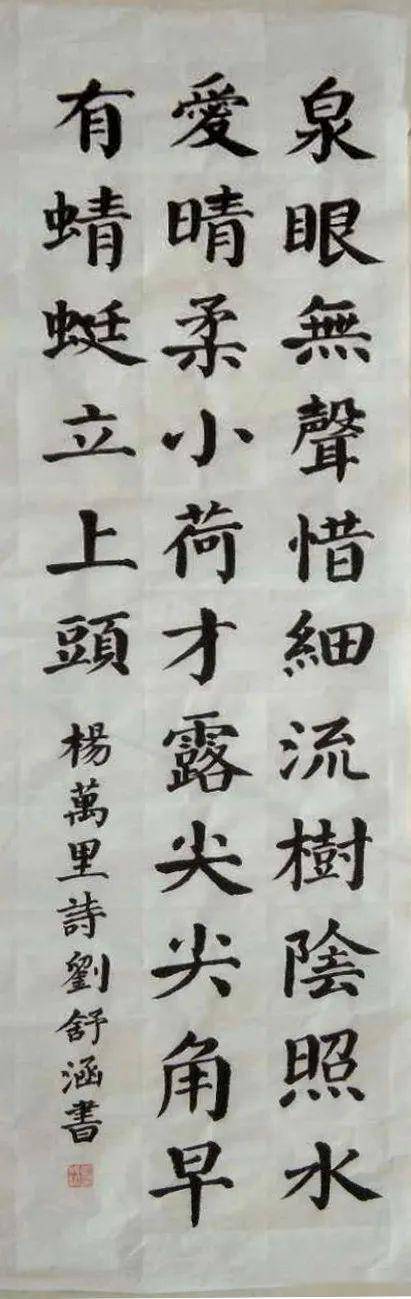 泉眼無聲惜細流樹陰照水
愛晴柔小荷才露尖尖角早
有蜻蜓立上頭
楊萬里詩劉舒涵書